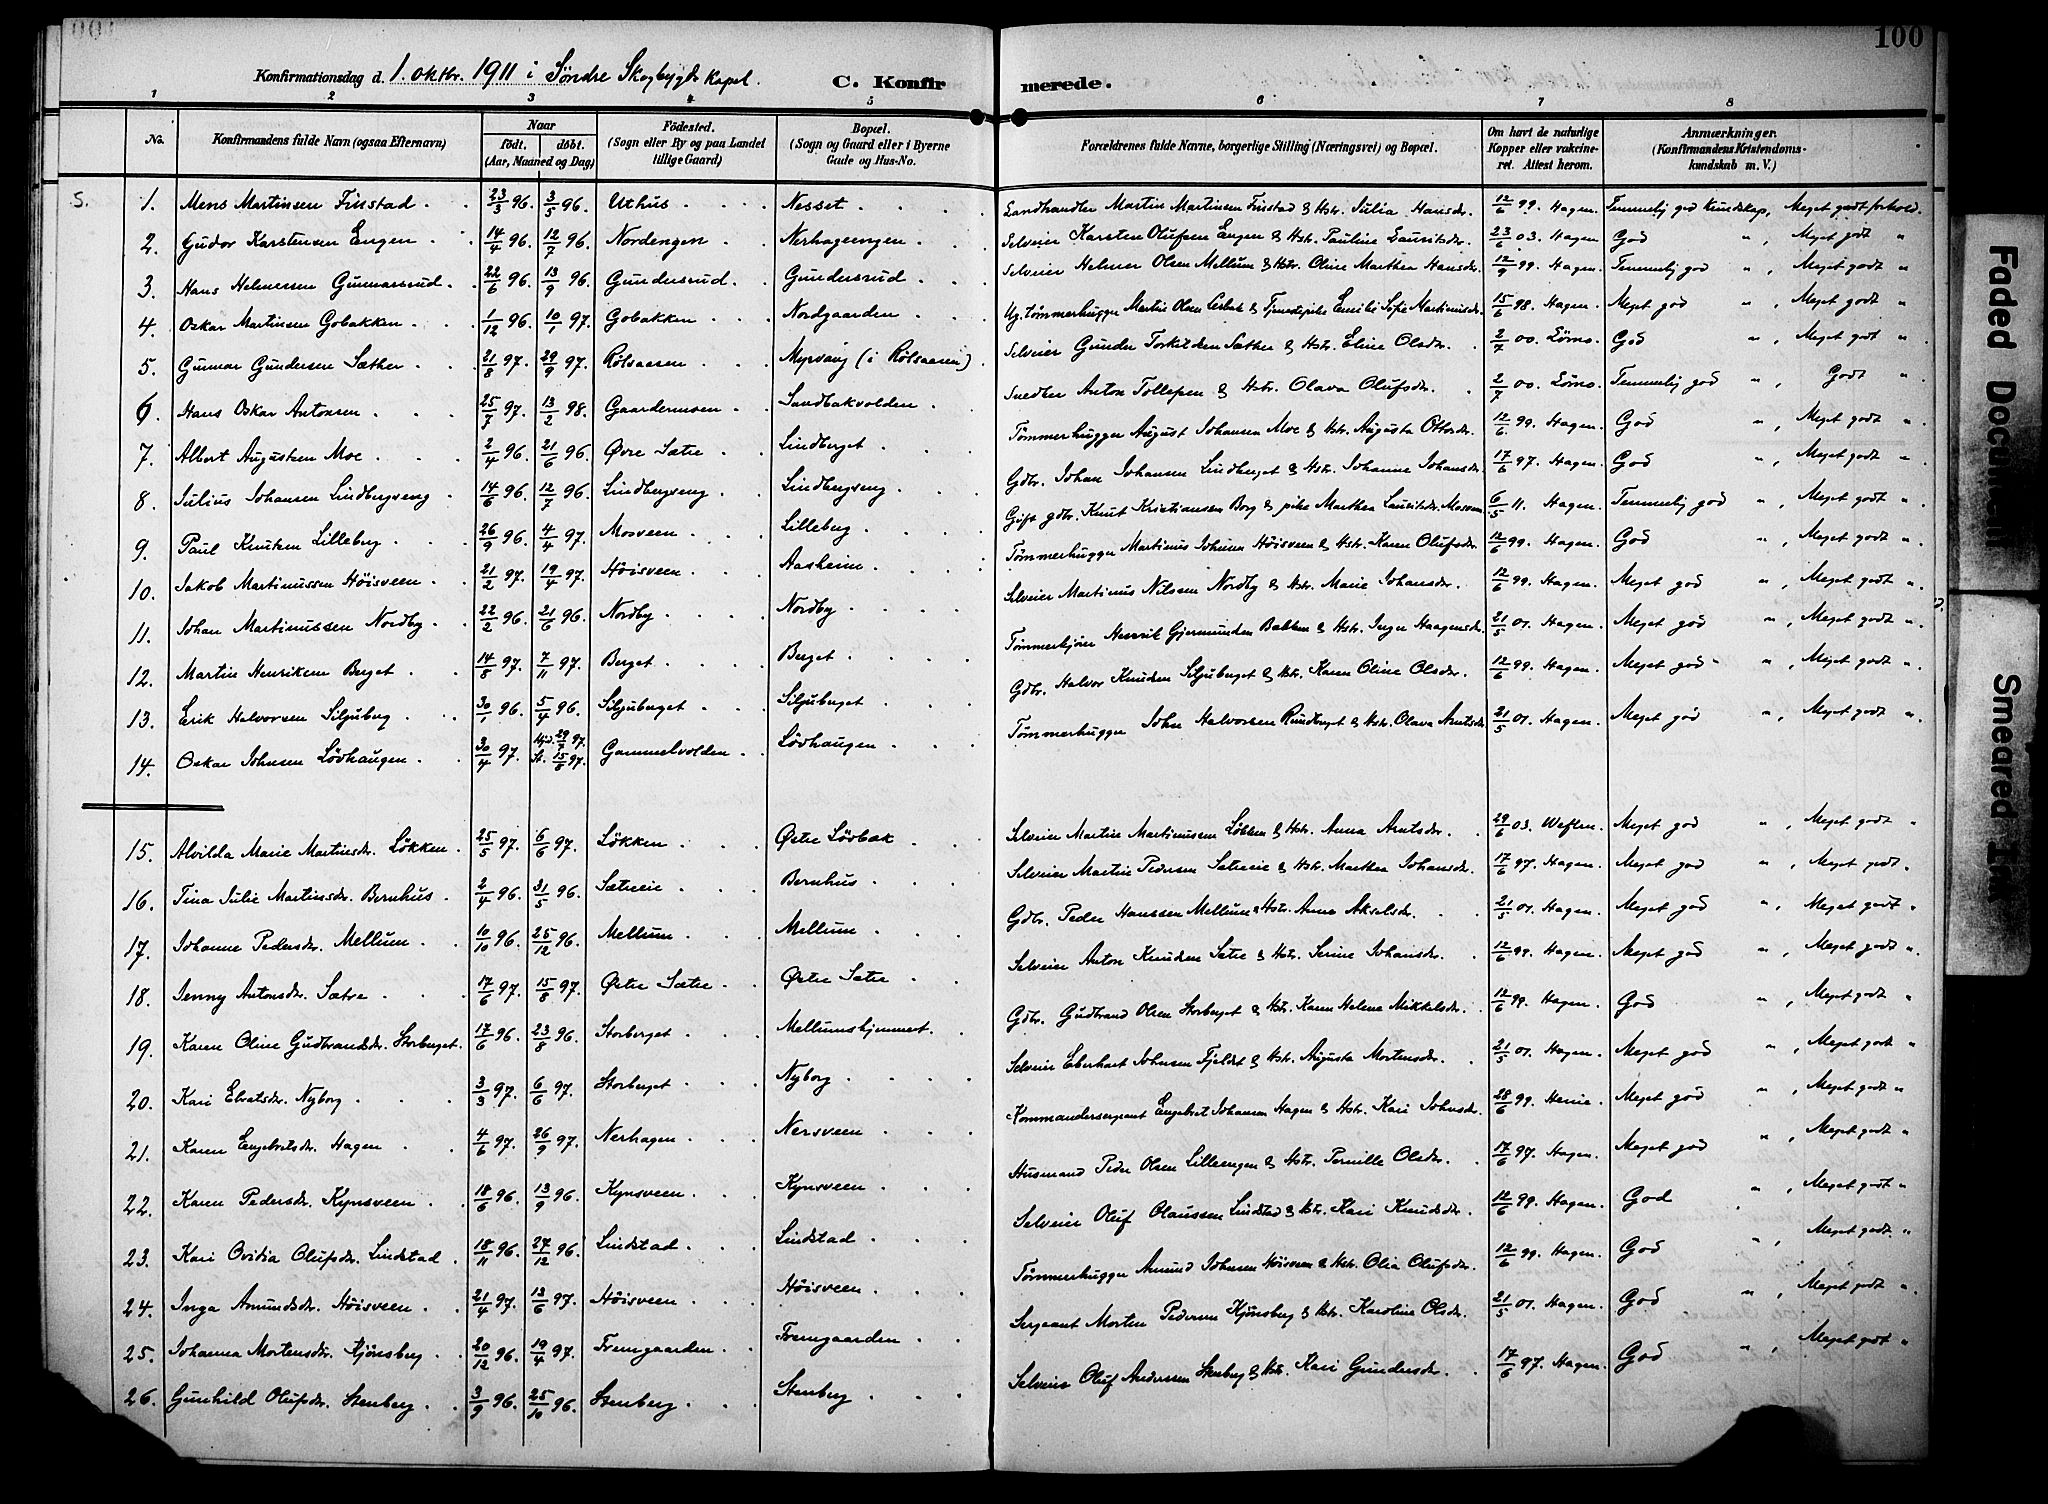 100
Konfirmationsdag d. 1. oktbr. 1911 i Søndre Skogbygds Kapel. C. Konfirmerede.
1 2 3 4 5 6 7 8
No. Konfirmandens fulde Navn (ogsaa Efternavn) Naar født. døbt. (Aar, Maaned og Dag) Födested. (Sogn eller By og paa Landet tillige Gaard) Bopæl. (Sogn og Gaard eller i Byerne Gade og Hus-No. Forældrenes fulde Navne, borgerlige Stilling (Næringsvei) og Bopæl. Om havt de naturlige Kopper eller vaccineret. Attest herom. Anmærkninger. (Konfirmandens Kristendomskundskab m. V.)
S. 1. Mens Martinsen Finstad 23/3 96. 3/5 96. Uthus Nesset Landhandler Martin Martinsen Finstad & Hstr. Julia Hansdr. 12/6 99. Hagen. Temmelig god Kundskap, Meget godt forhold.
2. Gudor Karstensen Engen 14/4 96. 12/7 96. Nordengen Nerhageengen Selveier Karsten Olufsen Engen & Hstr. Pauline Lauritsdr. 23/6 03. Hagen God " , Meget godt "
3. Hans Helmersen Gunnarsrud 22/6 96. 13/9 96. Gundersrud Gundersrud Selveier Helmer Olsen Mellum & Hstr. Oline Marthea Hansdr. 12/9 99. Hagen Temmelig god " , Meget godt "
4. Oskar Martinsen Gobakken 1/12 96. 10/1 97. Gobakken Nordgaarden Ug. Tømmerhugger Martin Olsen & Tjenestepike Emilie Sofie Martinusdr. 15/6 98. Hagen Meget god " , Meget godt "
5. Gunnar Gundersen Sæther 21/8 97. 29/9 97. Rølsaasen Myrvang (i Rølsaasen) Selveier Gunder Torkildsen Sæther & Hstr. Eline Olsdr. 2/7 00. Lömo. God " , Meget godt "
6. Hans Oskar Antonsen 25/7 97. 13/2 98. Gaardermoen Sandbakvolden Snedker Anton Tollefsen & Hstr. Olava Olufsdr. 2/7 00. Lömo. Temmelig god " , Godt "
7. Albert Augustsen Moe 2/4 96. 21/6 96. Øvre Sætre Lindberget Tømmerhugger August Johansen Moe & Hstr. Augusta Ottosdr. 12/6 99. Hagen. God " , Meget godt "
8. Julius Johansen Lindbergseng 14/6 96. 12/7 96. Lindbergseng Lindbergseng Gdbr. Johan Johansen Lindberget & Hstr. Johanne Johansdr. 17/6 97. Hagen. God " , Meget godt "
9. Paul Knutsen Lilleberg 26/9 96. 4/4 97. Mosveen Lilleberg Gift gdbr. Knut Kristiansen Borg & pike Marthea Lauritsdr. Mosveen 6/5 11. Hagen. Temmelig god " , Meget godt "
10. Jakob Martinussen Höisveen 21/2 97. 19/4 97. Höisveen Aasheim Tømmerhugger Martinus Johnsen Höisveen & Hstr. Karen Olufsdr. 12/6 99. Hagen. God " , Meget godt "
11. Johan Martinussen Nordby 22/2 96. 21/6 96. Nordby Nordby Selveier Martinus Nilssen Nordby & Hstr. Marie Johansdr. 12/6 99. Hagen. Meget god " , Meget godt "
12. Martin Henriksen Berget 14/8 97. 7/11 97. Berget Berget Tømmerkjører Henrik Gjermundsen Bakken & Hstr. Inger Haagensdr. 21/5 01. Hagen. Meget god " , Meget godt "
13. Erik Halvorsen Siljuberg 30/1 96. 5/4 96. Siljuberget Siljuberget Gdbr. Halvor Knudsen Siljuberget & Hstr. Karen Oline Olsdr. 12/6 99. Hagen. Meget god " , Meget godt "
14. Oskar Johnsen Lövhaugen 30/4 97. Hjd. 29/ 97. St. 15/ 97. Gammelvolden Lövhaugen Tømmerhugger John Halvorsen Rundberget & Hstr. Olava Arntsdr. 21/5 01. Hagen. Meget god " , Meget godt "
15. Alvilda Marie Martinsdr. Løkken 25/5 97. 6/6 97. Løkken Østre Lövbak Selveier Martin Martinussen Løkken & Hstr. Anna Arntsdr. 29/6 03. Meget god " , Meget godt "
16. Tina Julie Martinsdr. Bernhus 2/4 96. 31/5 96. Sætreeie Bernhus Selveier Martin Pedersen Sætreeie & Hstr. Marthea Johansdr. 17/6 97. Hagen. Meget god " , Meget godt "
17. Johanne Pedersdr. Mellum 10/10 96. 25/12 96. Mellum Mellum Gdbr. Peder Hanssen Mellum & Hstr. Anne Akselsdr. 21/5 01. Hagen. Meget god " , Meget godt "
18. Jenny Antonsdr. Sætre 17/6 97. 15/8 97. Østre Sætre Østre Sætre Selveier Anton Knudsen Sætre & Hstr. Serine Johansdr. 12/6 99. Hagen. Meget god " , Meget godt "
19. Karen Oline Gudbrandsdr. Storberget 17/6 96. 23/8 96. Storberget Mellumshjemmet. Gdbr. Gudbrand Olsen Storberget & Hstr. Karen Helene Mikkelsdr. 12/6 99. Hagen. God " , Meget godt "
20. Kari Ebratsdr. Nyborg 3/3 97. 6/6 97. Storberget Nyborg Selveier Eberhart Johnsen Fjeldet & Hstr. Augusta Mortensdr. 21/5 01. Hagen. Meget god " , Meget godt "
21. Karen Engebretsdr. Hagen 4/6 97. 26/9 97. Nerhagen Nersveen Kommandersergeant Engebret Johansen Hagen & Hstr. Kari Johnsdr. 28/6 99. Henie. Meget god " , Meget godt "
22. Karen Pedersdr. Kynsveen 18/6 96. 13/9 96. Kynsveen Kynsveen Husmand Peder Olsen Lilleengen & Hstr. Pernille Olsdr. 17/6 97. Hagen. Meget god " , Meget godt "
23. Kari Ovidia Olufsdr. Lindstad 18/11 96. 27/12 96. Lindstad Lindstad Selveier Oluf Olaussen Lindstad & Hstr. Kari Knudsdr. 12/6 99. Hagen. God " , Meget godt "
24. Inga Amundsdr. Höisveen 21/4 97. 13/6 97. Höisveen Höisveen Tømmerhugger Amund Johnsen Höisveen & Hstr. Olia Olufsdr. 12/6 99. Hagen. God " , Meget godt "
25. Johanna Mortensdr. Kjönsberg 20/12 96. 19/4 97. Fremgaarden Fremgaarden Sergeant Morten Pedersen Kjönsberg & Hstr. Karoline Olsdr. 21/5 01. Hagen. God " , Meget godt "
26. Gunhild Olufsdr. Stenberg 3/9 96. 25/10 96. Stenberg Stenberg Selveier Oluf Andersen Stenberg & Hstr. Kari Gundersdr. 17/6 97. Hagen. God " , Meget godt "
Faded Document
Smeared Ink